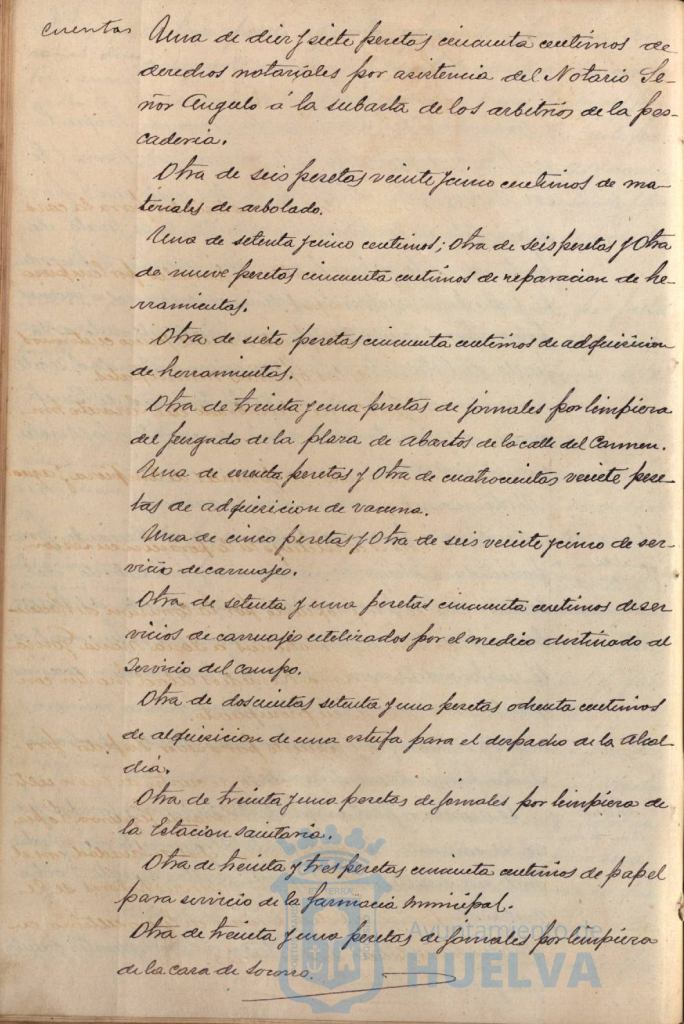 Cuentas
Una de diez y siete pesetas cincuenta centimos de
derechos notariales por asistencia del Notario Se-
ñor Angulo á la subasta de los arbitrios de la pes-
caderia.
Otra de seis pesetas veinte y cinco centimos de ma-
teriales de arbolado.
Una de setenta y cinco centimos; Otra de seis pesetas y Otra
de nueve pesetas cincuenta centimos de reparacion de he-
rramientas.
Otra de siete pesetas cincuenta centimos de adquisicion
de herramientas.
Otra de treinta y una pesetas de jornales por limpieza
del Juzgado de la plaza de abastos de la calle del Carmen.
Una de pesetas y Otra de cuatrocientas veinte pese-
tas de adquisicion de vacuna.
Una de cinco pesetas y Otra de seis veinte y cinco de ser-
vicio de carruajes.
Otra de setenta y una pesetas cincuenta centimos de ser-
vicios de carruajes utilizados por el medico destinado al
Servicio del Campo.
Otra de doscientas setenta y una pesetas ochenta centimos
de adquisicion de una estufa para el despacho de la Alcal-
dia.
Otra de treinta y una pesetas de jornales por limpieza de
la Estacion sanitaria.
Otra de treinta y tres pesetas cincuenta centimos de papel
para servicio de la farmacia municipal.
Otra de treinta y una pesetas de jornales por limpieza
de la casa de Socorro.
Ayuntamiento de
HUELVA